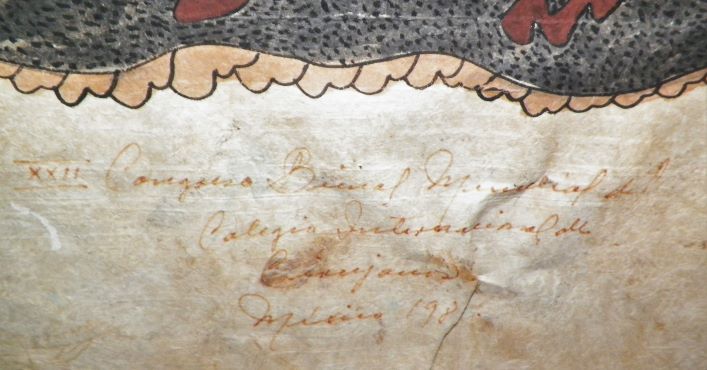 XXII Congreso Bienal Mundial del
Colegio Internacional de
Cirujanos
México 198